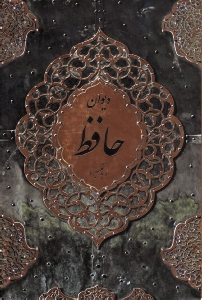 دیوان
حافظ